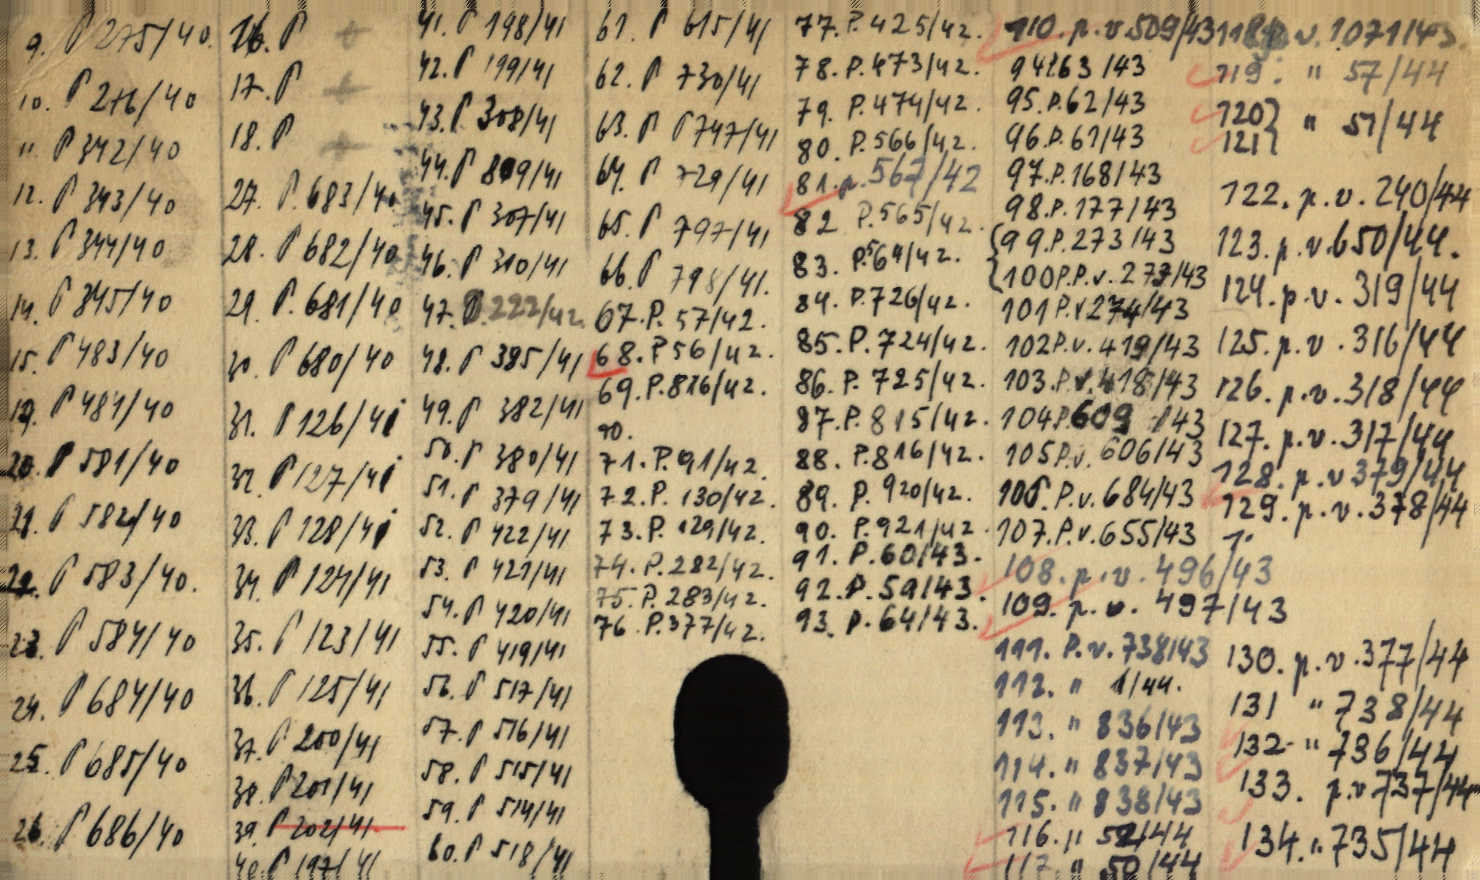 9. P 275/40.
10. P 276/40
" P 342/40
12. P 343/40
13. P 344/40
14. P 345/40
15. P 483/40
19. P 484/40
20. P 581/40
21. P 582/40
22. P 583/40.
23. P 584/40
24. P 684/40
25. P 685/40
26. P 686/40
16. P +
17. P +
18. P +
27. P. 683/40
28. P 682/40
29. P. 681/40
30. P 680/40
31. P 126/41
32. P 127/41
33. P 128/41
34. P 124/41
35. P 123/41
36. P 125/41
37. P 200/41
38. P 201/41
39. P 202/41.
40. P 197/41
41. P 198/41
42. P 199/41
43. P 308/41
44. P 809/41
45. P 307/41
46. P 310/41
47. P. 222/42.
48. P 385/41
49. P 382/41
50. P 380/41
51. P 379/41
52. P 422/41
53. P 421/41
54. P 420/41
55. P 419/41
56. P 517/41
57. P 516/41
58. P 515/41
59. P 514/41
60. P 518/41
61. P 615/41
62. P 730/41
63. P 747/41
64. P 729/41
65. P 797/41
66. P 798/41.
67. P. 57/42.
68. P 56/42.
69. P. 816/42.
70.
71. P. 91/42.
72. P. 130/42.
73. P. 129/42.
74. P. 282/42.
75. P. 283/42.
76. P. 377/42.
77. P. 425/42.
78. P. 473/42.
79. P. 474/42.
80. P. 566/42.
81. p. 567/42
82 P. 565/42.
83. P. 564/42.
84. P. 726/42.
85. P. 724/42.
86. P. 725/42.
87. P. 815/42.
88. P. 816/42.
89. P. 920/42.
90. P. 921/42.
91. P. 60/43.
92. P. 59/43.
93. P. 64/43.
110. p. v. 509/43
94 P. 63/43
95. P. 62/43
96. P. 61/43
97. P. 168/43
98. P. 177/43
99. P. 273/43
100 P. P. v. 273/43
101 P. v 274/43
102 P. v. 419/43
103. P. v. 418/43
104 P. 609/43
105 P. v. 606/43
106. P. v. 684/43
107. P. v. 655/43
108. p. v. 496/43
109. p. v. 497/43
111. P. v. 738/43
112. " 1/44.
113. " 836/43
114. " 837/43
115. " 838/43
116. " 52/44
117. " 50/44
118 p. v. 1071/43.
119. " 57/44
120 } " 51/44
121 }
122. p. v. 240/44
123. p. v. 650/44.
124. p. v. 319/44
125. p. v. 316/44
126. p. v. 318/44
127. p. v. 317/44
128. p. v 379/44
129. p. v. 378/44
1.
130. p. v. 377/44
131 " 738/44
132 " 736/44
133. p. v 737/44
134. " 735/44